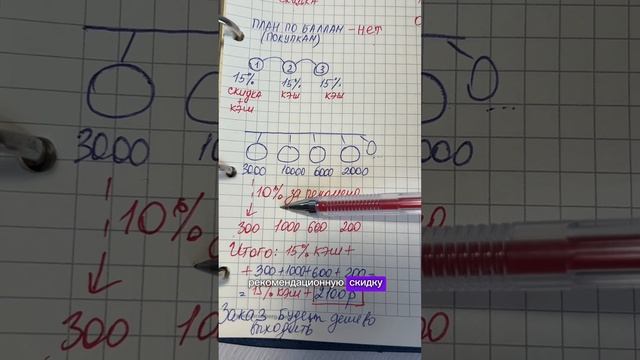 скидка
ПЛАН ПО БАЛЛАМ - НЕТ
(ПОКУПКАМ)
1 2 3
15% 15% 15%
скидка кэш кэш
+
кэш
3000 10000 6000 2000
10% за рекоменд
300 1000 600 200
Итого: 15% кэш +
+ 300+1000+600+200 =
рекомендационную скидку
= 15% кэш + 2100р
Заказ будет дешево
выходить
3000
10%
300
200